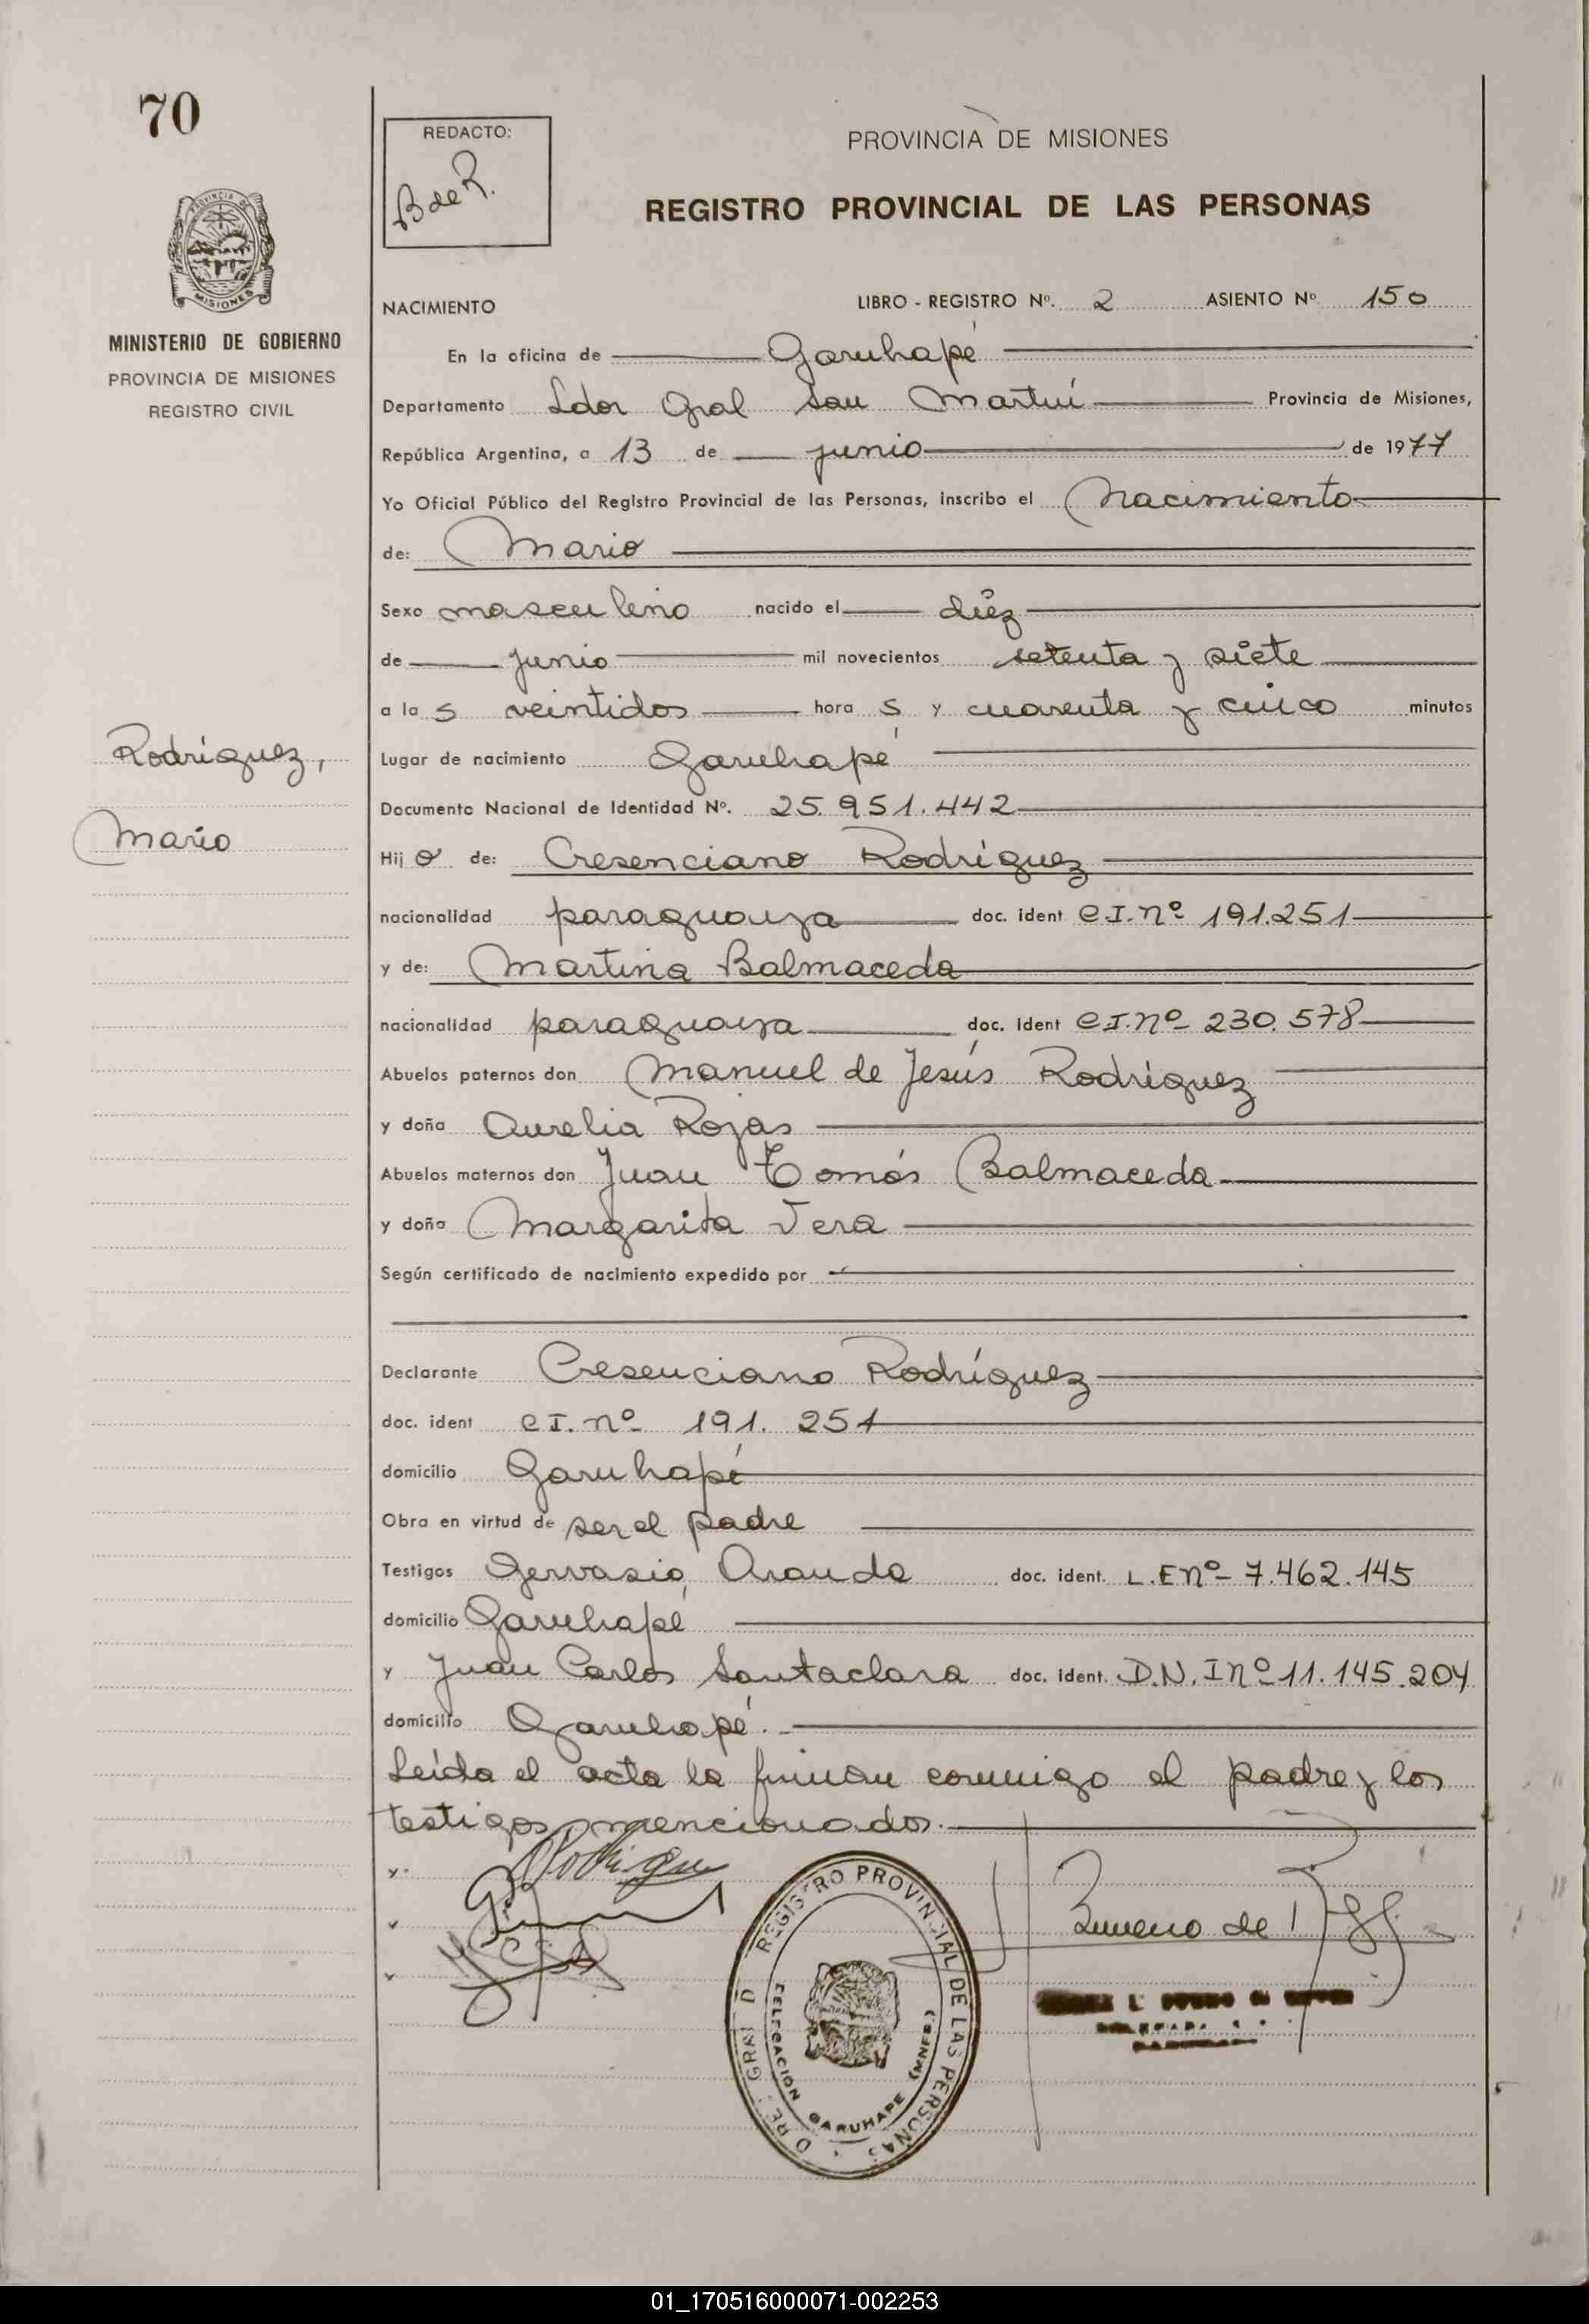 70
REDACTO:
B de R.
PROVINCIA DE MISIONES
REGISTRO PROVINCIAL DE LAS PERSONAS
PROVINCIA DE
MISIONES
MINISTERIO DE GOBIERNO
PROVINCIA DE MISIONES
REGISTRO CIVIL
NACIMIENTO LIBRO - REGISTRO Nº. 2 ASIENTO Nº 150
En la oficina de Garuhapé
Departamento Ldor Gral San Martín Provincia de Misiones,
República Argentina, a 13 de junio de 1977
Yo Oficial Público del Registro Provincial de las Personas, inscribo el Nacimiento
de: Mario
Sexo masculino nacido el diez
de junio mil novecientos setenta y siete
a la s veintidos hora s y cuarenta y cinco minutos
Rodríguez,
Mario
Lugar de nacimiento Garuhapé
Documento Nacional de Identidad Nº. 25.951.442
Hij o de: Cresenciano Rodríguez
nacionalidad paraguaya doc. ident C.I. nº 191.251
y de: Martina Balmaceda
nacionalidad paraguaya doc. Ident C.I. nº 230.578
Abuelos paternos don Manuel de Jesús Rodríguez
y doña Aurelia Rojas
Abuelos maternos don Juan Tomás Balmaceda
y doña Margarita Vera
Según certificado de nacimiento expedido por
Declarante Cresenciano Rodríguez
doc. ident C.I. nº 191. 251
domicilio Garuhapé
Obra en virtud de ser el padre
Testigos Gervasio Aranda doc. ident. L.E nº 7.462.145
domicilio Garuhapé
y Juan Carlos Santaclara doc. ident. D.N.I nº 11.145.204
domicilio Garuhapé.
Leída el acta la firman conmigo el padre y los
testigos mencionados.
REGISTRO PROVINCIAL DE LAS PERSONAS
DELEGACION GARUHAPE (MNES.)
01_170516000071-002253